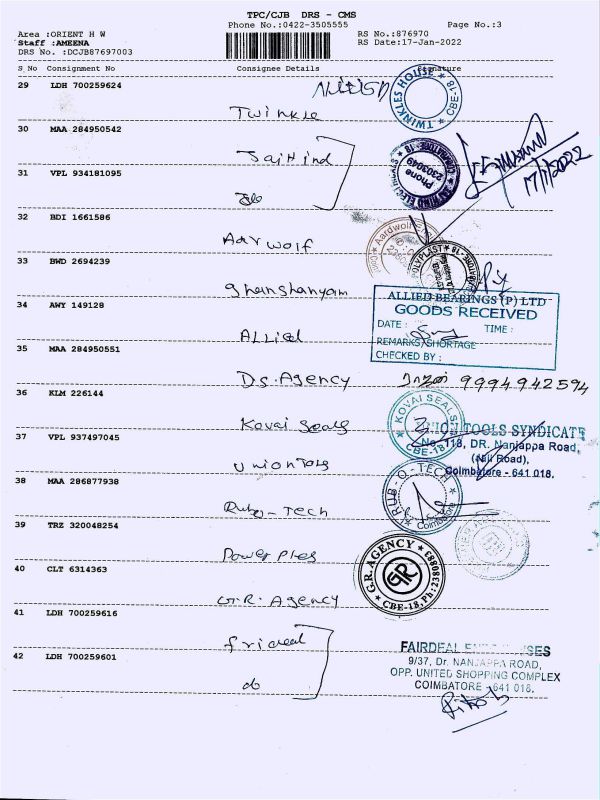 TPC/CJB DRS - CMS
Phone No.:0422-3505555 Page No.:3
Area :ORIENT H W RS No.:876970
Staff :AMEENA RS Date:17-Jan-2022
DRS No. :DCJB87697003
S_No Consignment No Consignee Details Signature
29 LDH 700259624
Twinkle
TWINKLES HOUSE CBE-18
30 MAA 284950542
Jaihind
Phone 2303049
17/1/2022
31 VPL 934181095
do
32 BDI 1661586
Aarwolf
Aardwolf
33 BWD 2694239
Ghanshanyam
POLYPLAST
34 AWY 149128
Allied
ALLIED BEARINGS (P) LTD
GOODS RECEIVED
DATE : TIME :
REMARKS/SHORTAGE
CHECKED BY :
35 MAA 284950551
Ds. Agency 9994942594
36 KLM 226144
Kovai Seals
KOVAI SEALS CBE-18
37 VPL 937497045
Union Tools
UNION TOOLS SYNDICATE
No. 118, DR. Nanjappa Road,
(Jail Road),
Coimbatore - 641 018.
38 MAA 286877938
Rub-o-Tech
RUB-O-TECH Coimbatore
39 TRZ 320048254
Power Ples
40 CLT 6314363
G.R. Agency
G.R. AGENCY GR CBE-18, Ph:2380883
41 LDH 700259616
frideal
42 LDH 700259601
do
FAIRDEAL ENTERPRISES
9/37, Dr. NANJAPPA ROAD,
OPP. UNITED SHOPPING COMPLEX
COIMBATORE - 641 018.